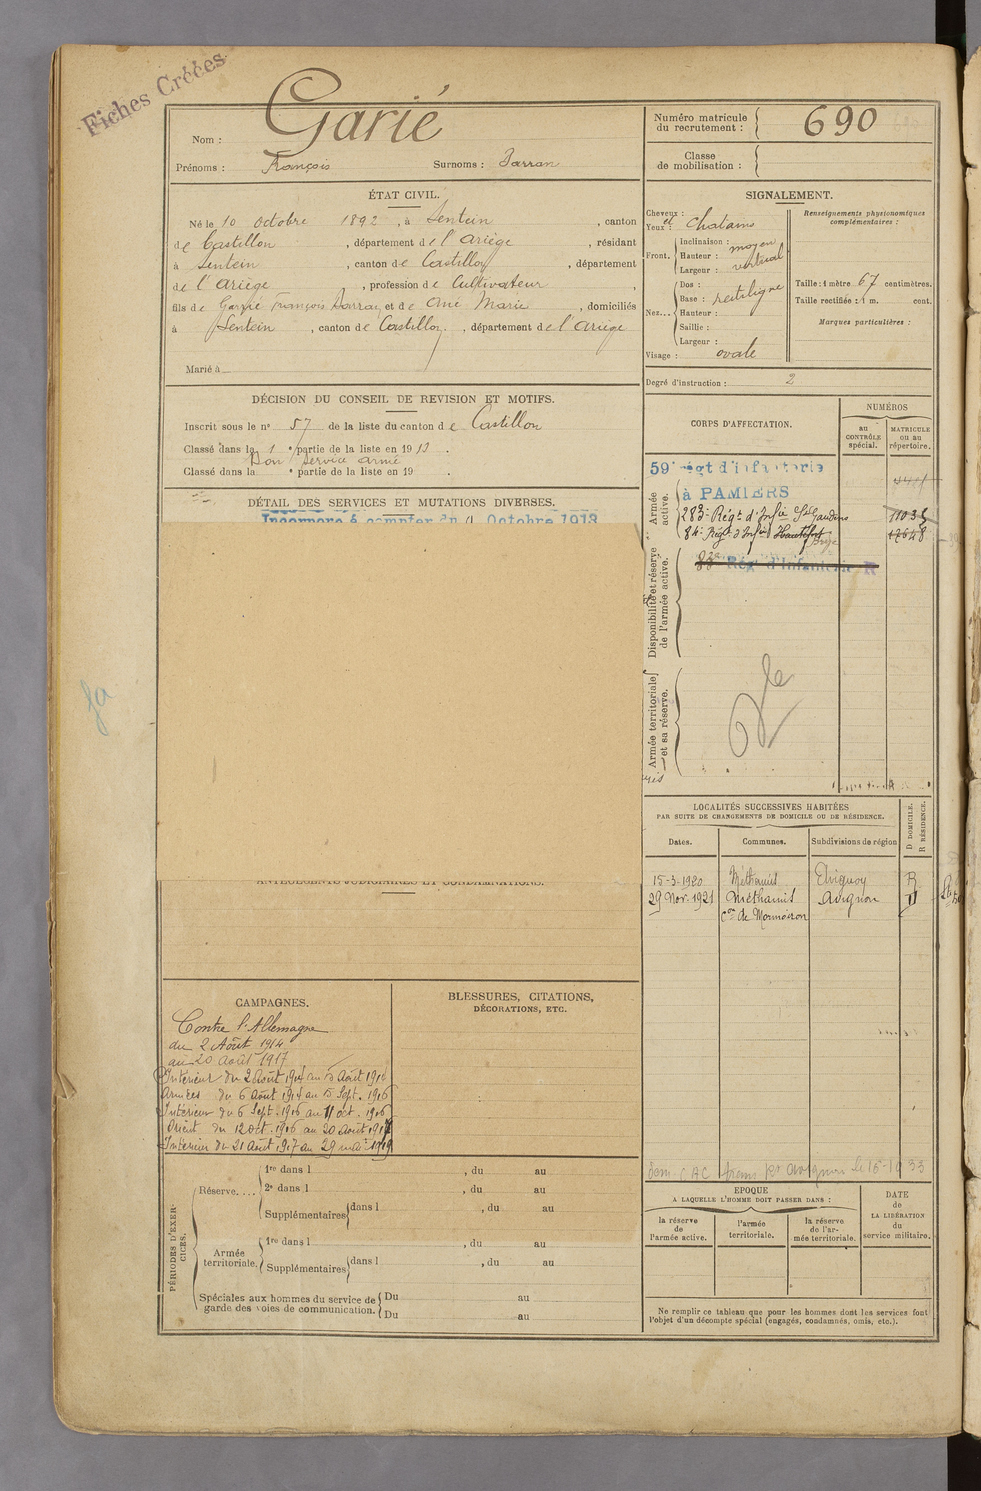 Fiches Créées
Nom : Garié
Prénoms : François Surnoms : Barran
Numéro matricule
du recrutement : 690
Classe
de mobilisation :
ÉTAT CIVIL.
Né le 10 octobre 1892, à Sentein, canton
de Castillon, département de l'Ariège, résidant
à Sentein, canton de Castillon, département
de l'Ariège, profession de Cultivateur,
fils de Garié François Barran et de Ané Marie, domiciliés
à Sentein, canton de Castillon, département de l'Ariège
Marié à
SIGNALEMENT.
Cheveux :
Yeux : et chatains
Front. Inclinaison : moyen
Hauteur : vertical
Largeur :
Nez... Dos : rectiligne
Base :
Hauteur :
Saillie :
Largeur :
Visage : ovale
Renseignements physionomiques
complémentaires :
Taille : 1 mètre 67 centimètres.
Taille rectifiée : 1 m. cent.
Marques particulières :
Degré d'instruction : 2
DÉCISION DU CONSEIL DE REVISION ET MOTIFS.
Inscrit sous le n° 57 de la liste du canton de Castillon
Classé dans la 1 e partie de la liste en 1913.
Bon service armé
Classé dans la e partie de la liste en 19 .
DÉTAIL DES SERVICES ET MUTATIONS DIVERSES.
Incorporé à compter du 11 Octobre 1913
CORPS D'AFFECTATION.
NUMÉROS
au
CONTRÔLE
spécial.
MATRICULE
ou au
répertoire.
Armée
active.
59e régt d'infanterie
à PAMIERS
283e Régt d'Infie St Gaudens 11035
84e Régt d'Infie Hautefort 17648
Disponibilité et réserve
de l'armée active.
83e Rég' d'Infanterie R
Armée territoriale
et sa réserve.
LOCALITÉS SUCCESSIVES HABITÉES
PAR SUITE DE CHANGEMENTS DE DOMICILE OU DE RÉSIDENCE.
Dates. Communes. Subdivisions de région
D DOMICILE.
R RÉSIDENCE.
15-3-1920 Méthamis Avignon R
29 Nov. 1921 Méthamis Avignon D
con de Mormoiron
ANTÉCÉDENTS JUDICIAIRES ET CONDAMNATIONS.
CAMPAGNES.
Contre l'Allemagne
du 2 Août 1914
au 20 Août 1917
Intérieur du 2 août 1914 au 5 Août 1914
Armées du 6 Août 1914 au 5 Sept. 1916
Intérieur du 6 Sept. 1916 au 11 oct. 1916
Orient du 12 oct. 1916 au 20 Août 1917
Intérieur du 21 Août 1917 au 29 mai 1919
BLESSURES, CITATIONS,
DÉCORATIONS, ETC.
PÉRIODES D'EXER-
CICES.
Réserve.... 1re dans l , du au
2e dans l , du au
Supplémentaires dans l , du au
Armée
territoriale. 1re dans l , du au
Supplémentaires dans l , du au
Spéciales aux hommes du service de
garde des voies de communication.
Du au
Du au
EPOQUE
A LAQUELLE L'HOMME DOIT PASSER DANS :
la réserve
de
l'armée active.
l'armée
territoriale.
la réserve
de l'ar-
mée territoriale.
DATE
de
LA LIBÉRATION
du
service militaire.
Ne remplir ce tableau que pour les hommes dont les services font
l'objet d'un décompte spécial (engagés, condamnés, omis, etc.).